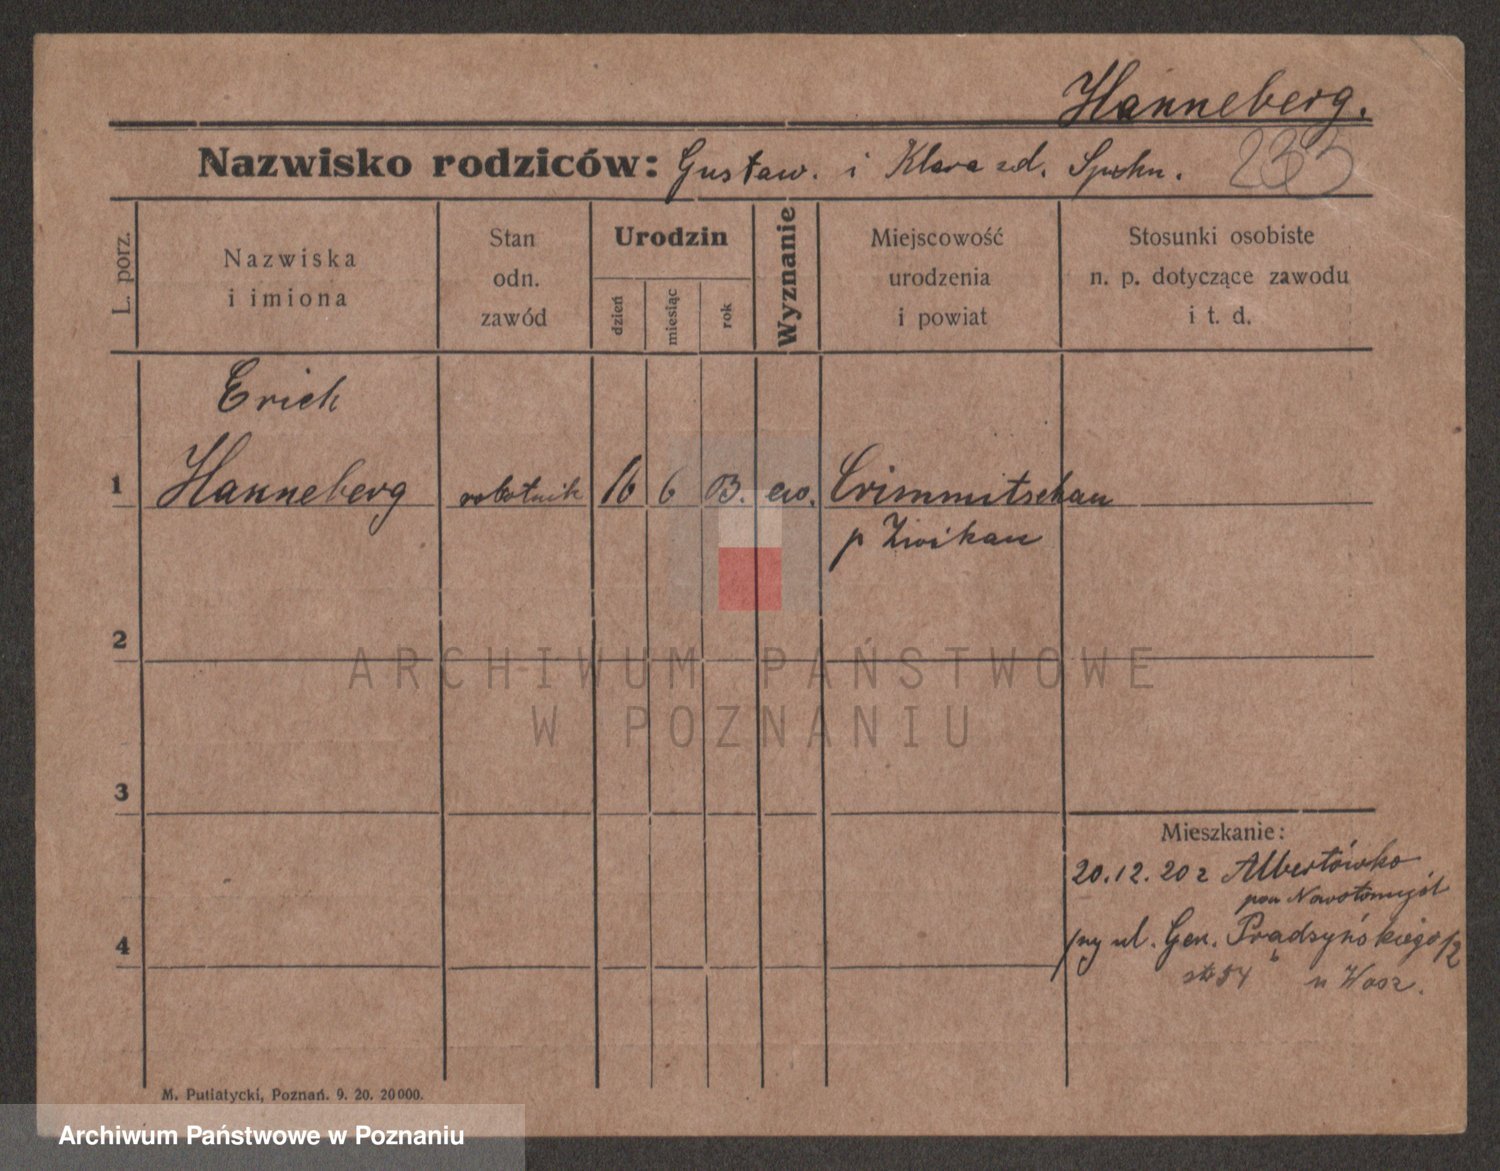 Hanneberg.
Nazwisko rodziców: Gustaw. i Klara zd.
233
L. porz.
Nazwiska
i imiona
Stan
odn.
zawód
Urodzin
dzień
miesiąc
rok
Wyznanie
Miejscowość
urodzenia
i powiat
Stosunki osobiste
n. p. dotyczące zawodu
i t. d.
Erich
1 Hanneberg robotnik 16 6 03. ew. Crimmitschau
p Zwikau
2
ARCHIWUM PAŃSTWOWE
W POZNANIU
3
Mieszkanie:
20.12.20 z Albertówko
pow Nowotomyśl
4
przy ul. Gen. Prądzyńskiego 12
54 u Wosz.
M. Putiatycki, Poznań. 9. 20. 20000.
Archiwum Państwowe w Poznaniu